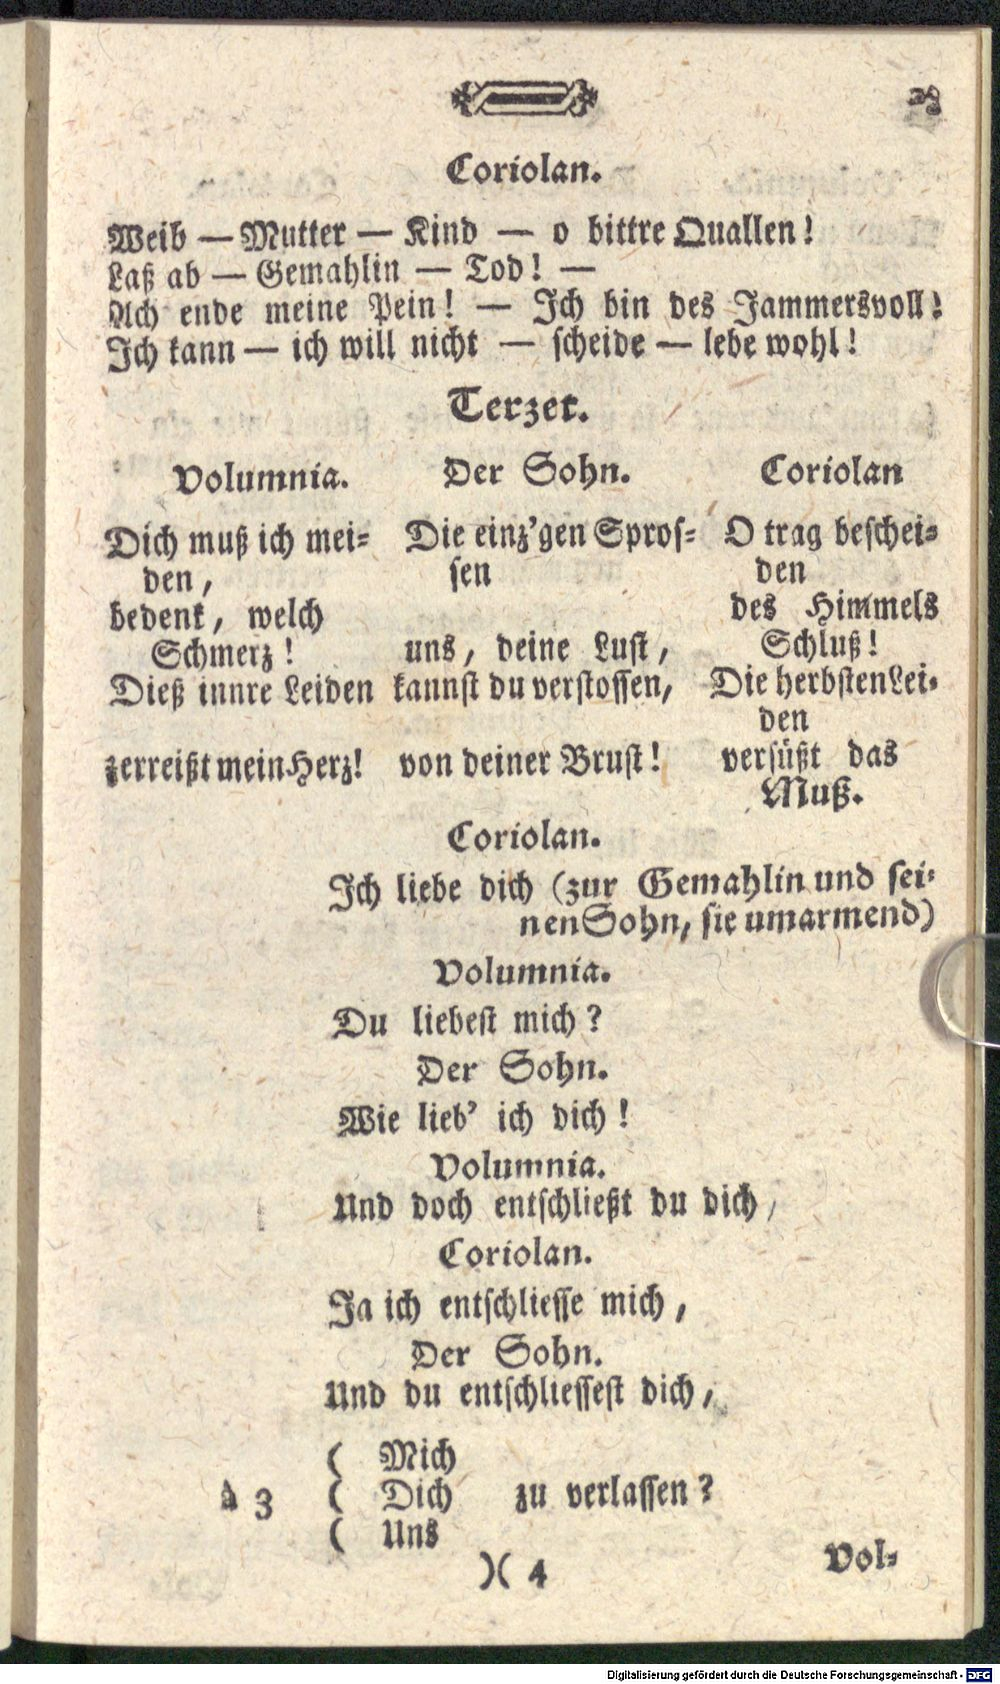 Coriolan.
Weib — Mutter — Kind — o bittre Quallen!
Laß ab — Gemahlin — Tod! —
Ach ende meine Pein! — Ich bin des Jammersvoll!
Ich kann — ich will nicht — scheide — lebe wohl!
Terzet.
Volumnia.
Dich muß ich mei-
den,
bedenk, welch
Schmerz!
Dieß innre Leiden
zerreißt mein Herz!
Der Sohn.
Die einz'gen Spros-
sen
uns, deine Lust,
kannst du verstossen,
von deiner Brust!
Coriolan
O trag beschei-
den
des Himmels
Schluß!
Die herbsten Lei-
den
versüßt das
Muß.
Coriolan.
Ich liebe dich (zur Gemahlin und sei-
nen Sohn, sie umarmend)
Volumnia.
Du liebest mich?
Der Sohn.
Wie lieb' ich dich!
Volumnia.
Und doch entschließt du dich,
Coriolan.
Ja ich entschliesse mich,
Der Sohn.
Und du entschliessest dich,
( Mich
à 3 ( Dich zu verlassen?
( Uns
)( 4 Vol-
Digitalisierung gefördert durch die Deutsche Forschungsgemeinschaft - DFG